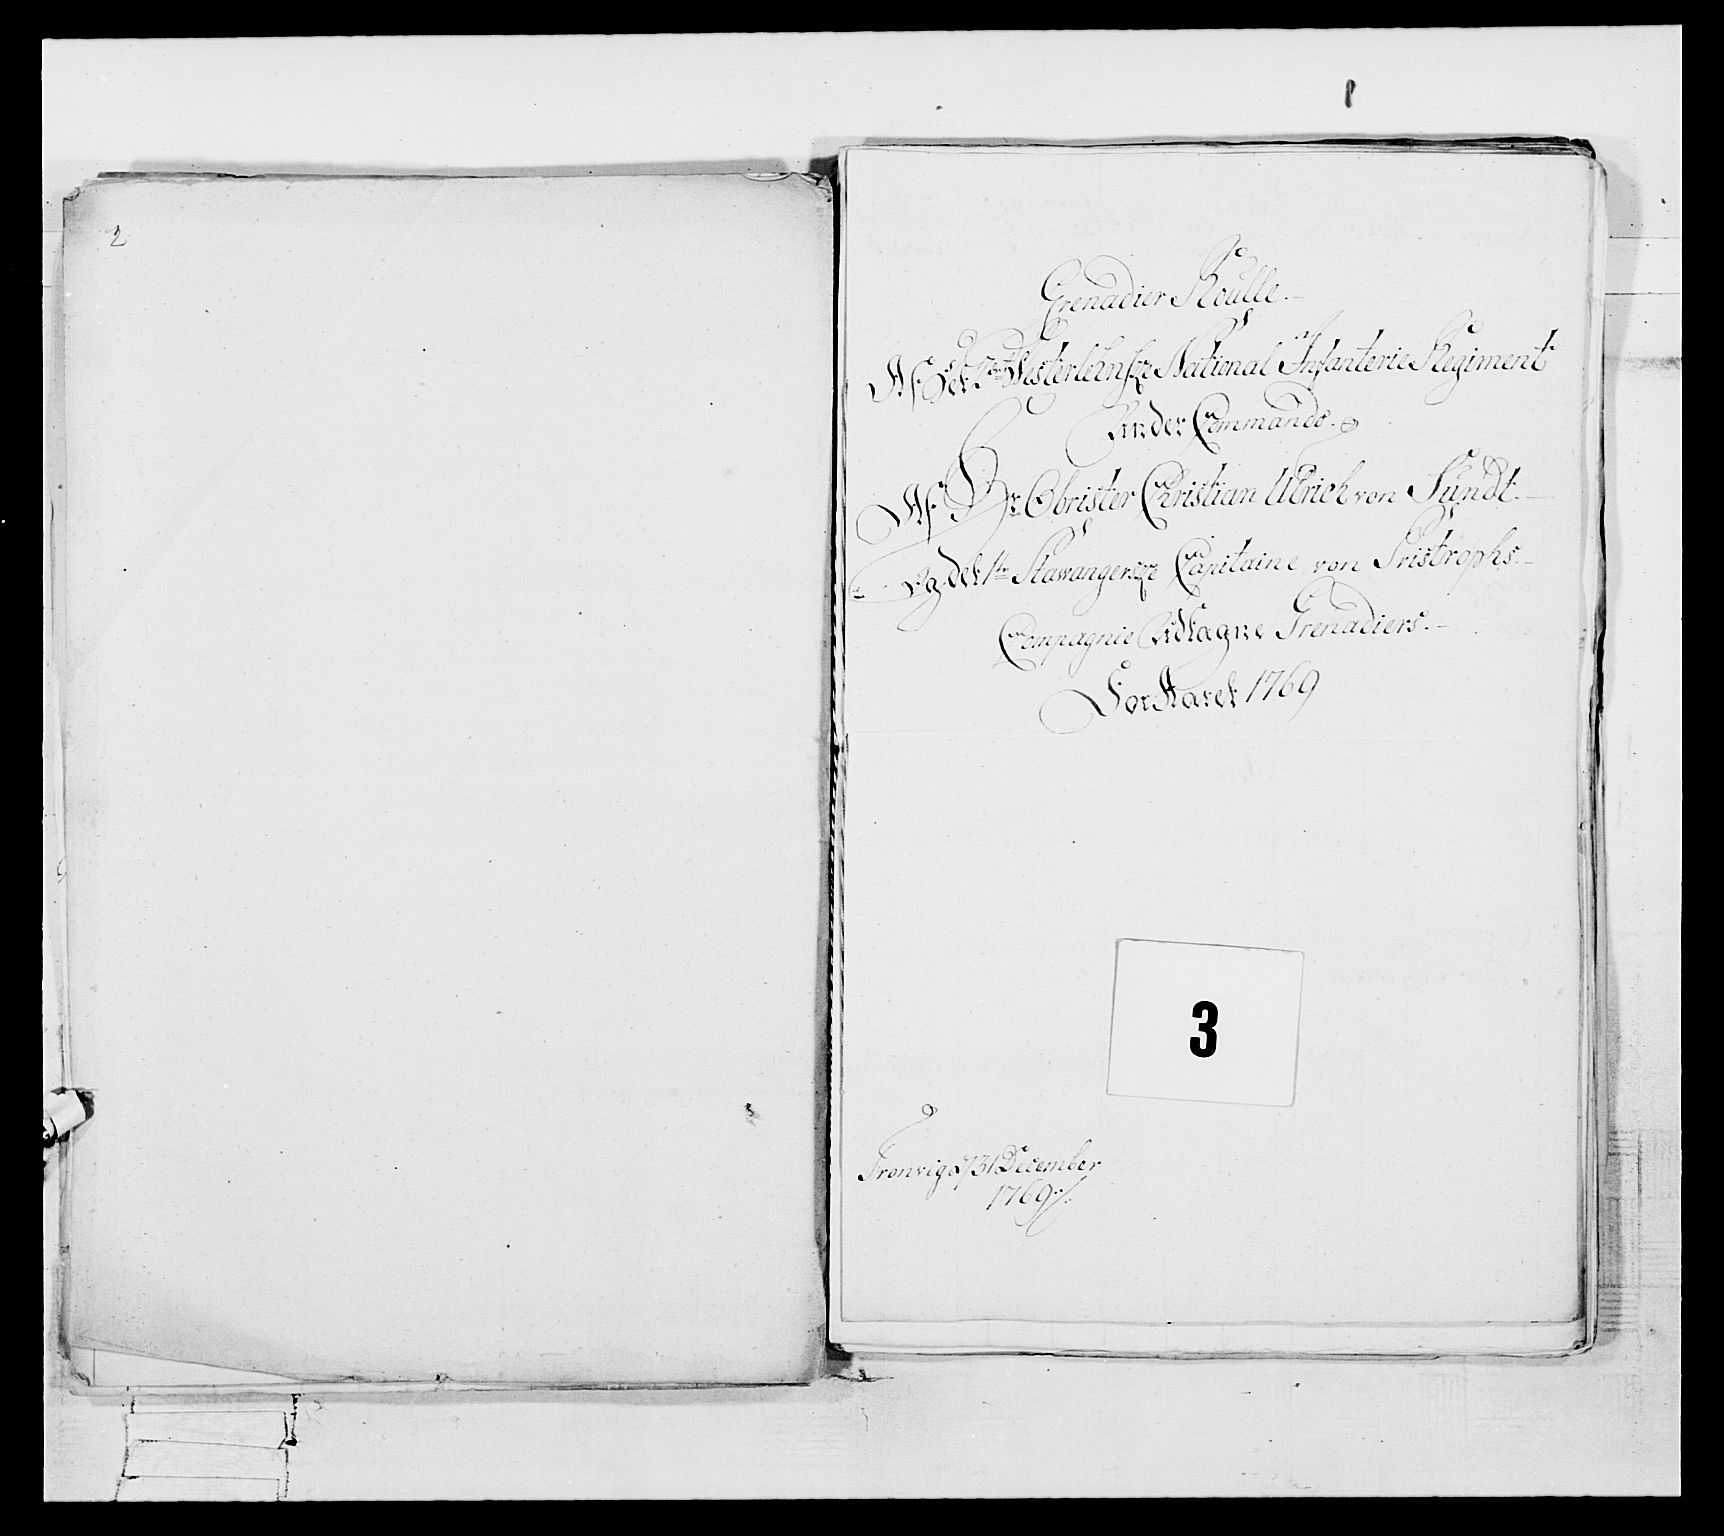 2
Grenadier Roulle.
Af det 2det Westerlehnske National Infanterie Regiment
Under Commando.
Af Hr Obrister Christian Ulrich von Sundt.
og det 1te Stawangerske Capitaine von Tristrophs.
Compagnie Udtagne Grenadiers.
For Aaret 1769
3
Tronvig d 31 December
1769 ./.